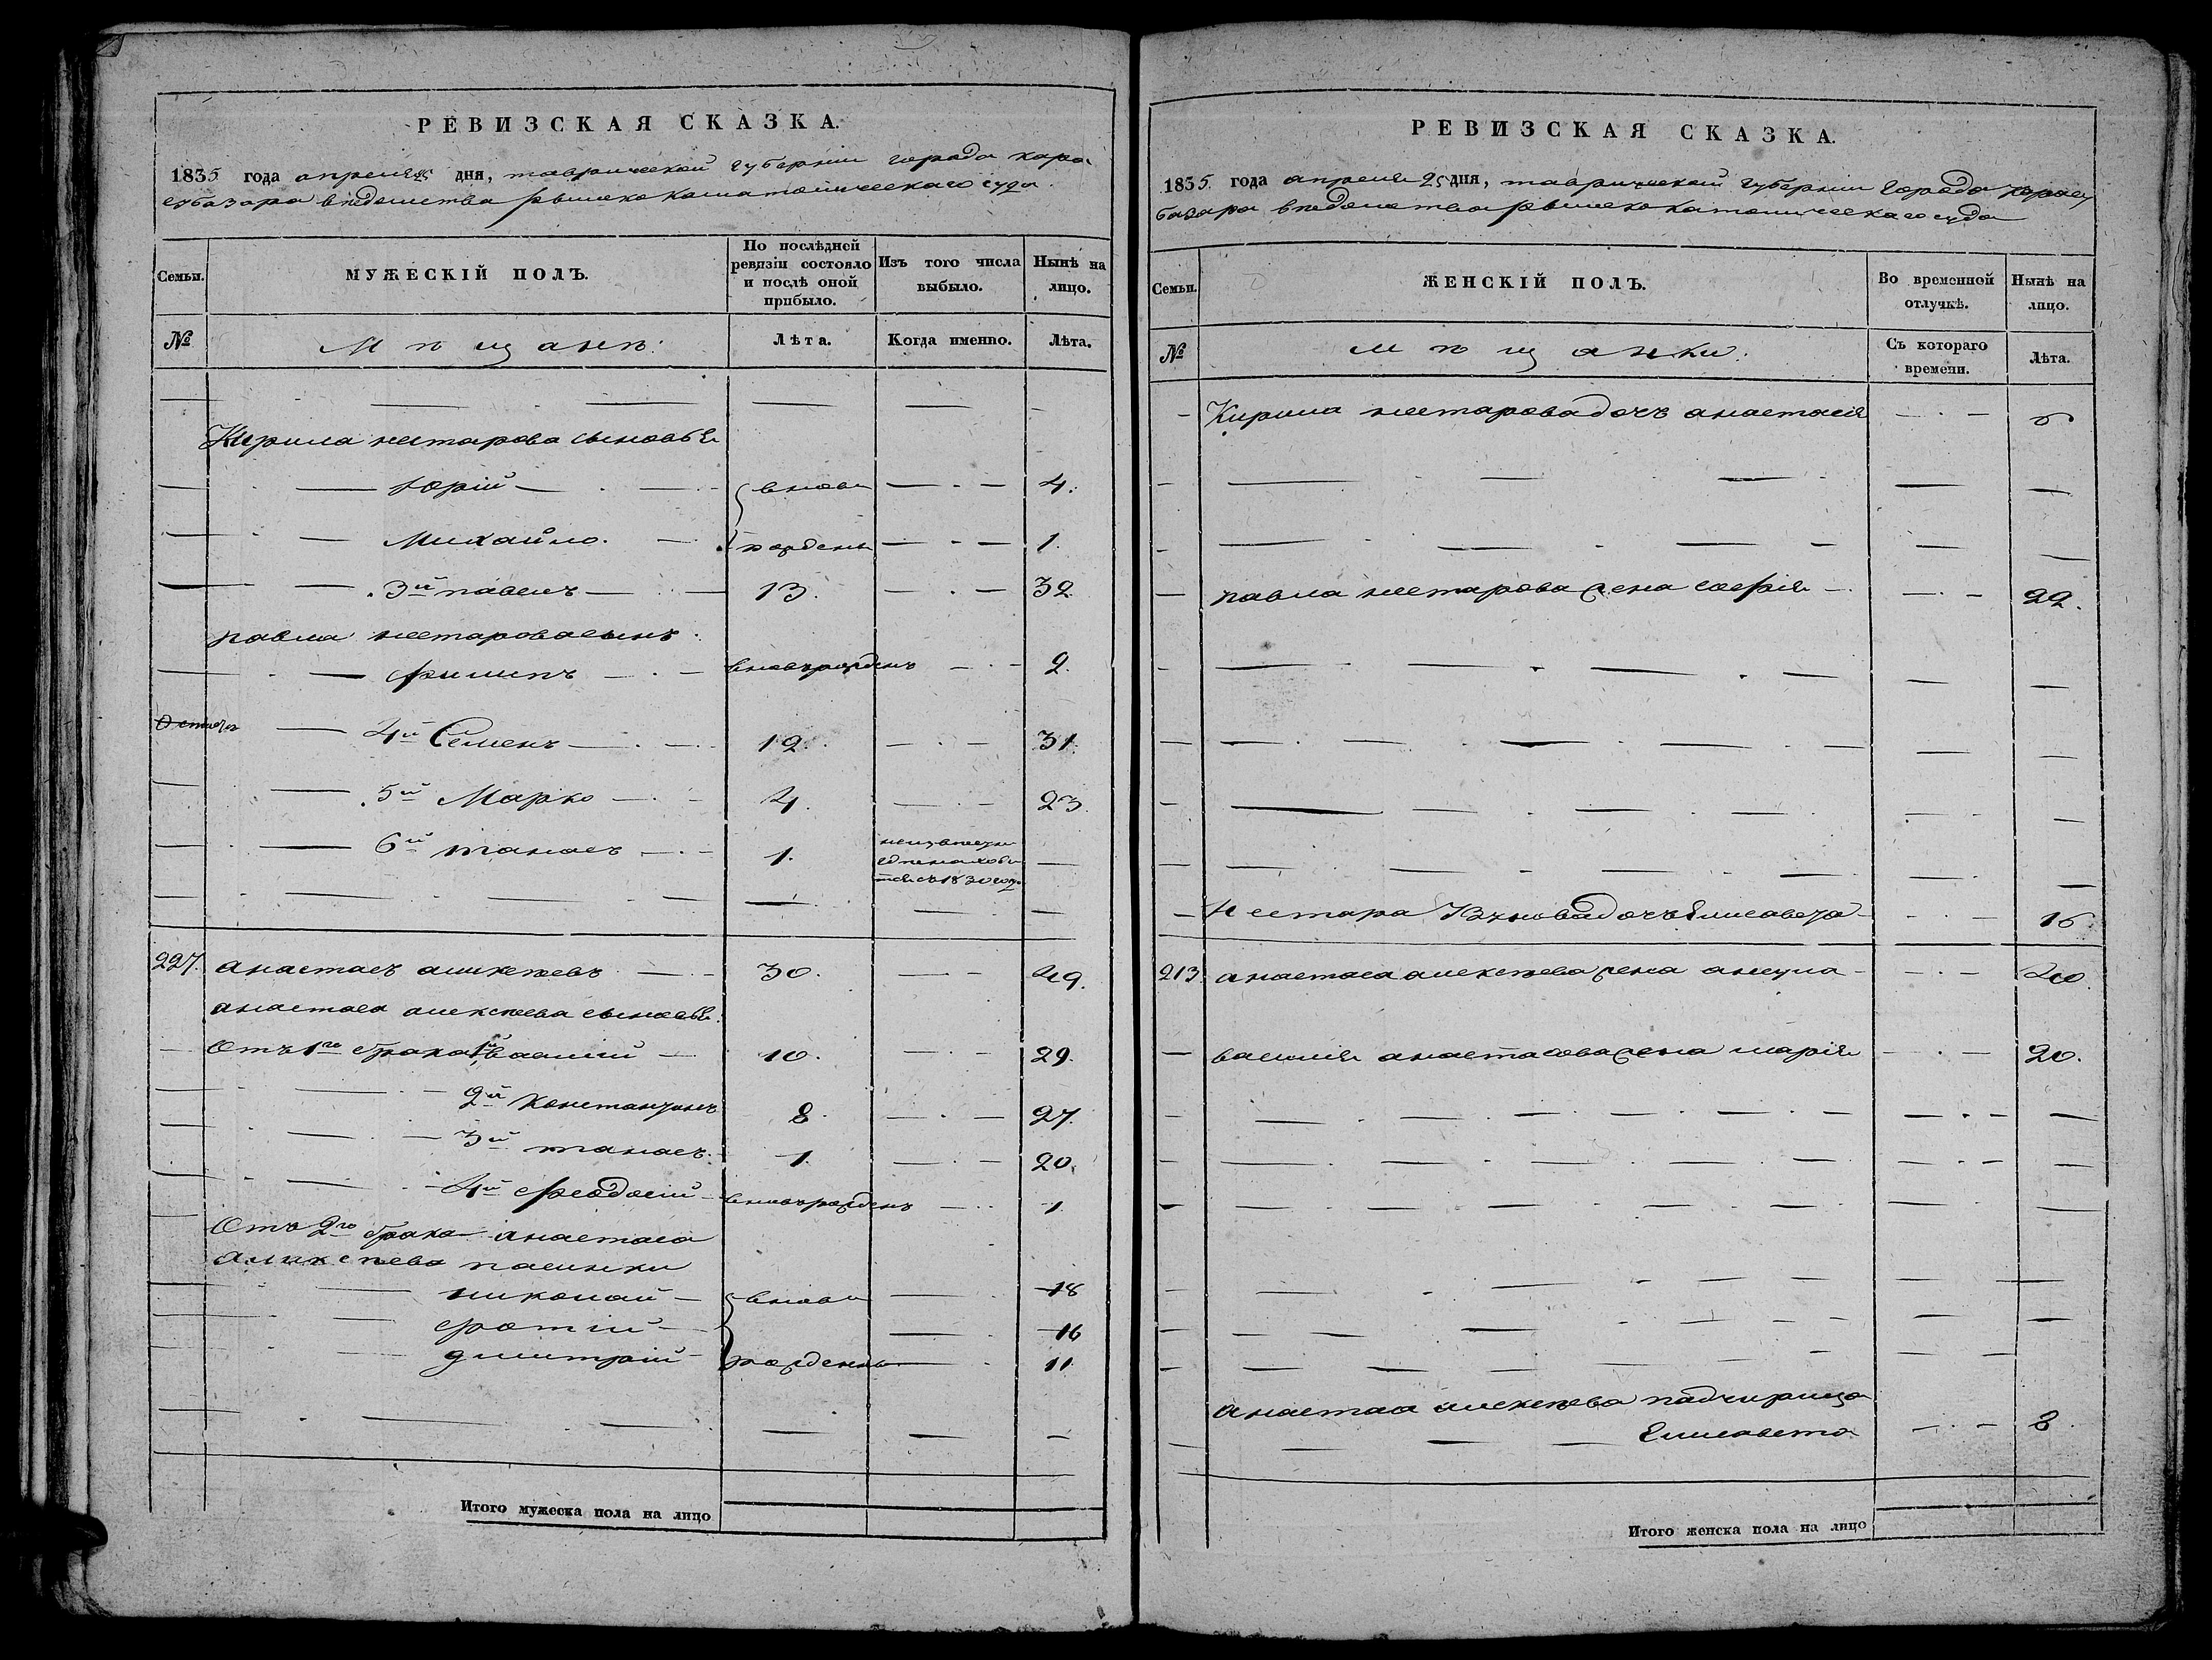 РЕВИЗСКАЯ СКАЗКА.
1835 года апреля 25 дня, таврической губернии города кара
субазара вѣдомства римско католическаго суда.
Семьи. МУЖЕСКІЙ ПОЛЪ. По послѣдней ревизіи состояло и послѣ оной прибыло. Изъ того числа выбыло. Нынѣ на лицо.
№ Мѣщанъ: Лѣта. Когда именно. Лѣта.
Кирила нестарова сыновья
Юрій вновь 4.
Михайло. рождены 1.
3й павелъ 13. 32
павла нестарова сынъ
филипъ вновьрожденъ 2.
4й Семенъ 12. 31.
5й Марко 4. 23.
6й танасъ 1. неизвестно
где находи
тся съ 1830 года
227. анастасъ алексѣевъ 30. 49.
анастаса алексѣева сыновья.
Отъ 1го брака 1й василій 10. 29.
2й константинъ 8. 27.
3й танасъ. 1. 20.
4й феодосій вновьрожденъ 1
Отъ 2го брака анастаса
алексѣева пасынки
николай вновь 18
фотій 16
дмитрій рождены 11
Итого мужеска пола на лицо
РЕВИЗСКАЯ СКАЗКА.
1835 года апреля 25 дня, таврической губернии города карасу
базара вѣдомства римско католическаго суда
Семьи. ЖЕНСКІЙ ПОЛЪ. Во временной отлучкѣ. Нынѣ на лицо.
№ мѣщанки: Съ котораго времени. Лѣта.
Кирила нестарова дочь анастасія 6
павла нестарова жена софія 22.
Нестара дочь Елисавета 16
213 анастаса алексѣева жена 40.
василія анастасова жена марія 20.
анастаса алексѣева падчирица
Елисавета 8.
Итого женска пола на лицо